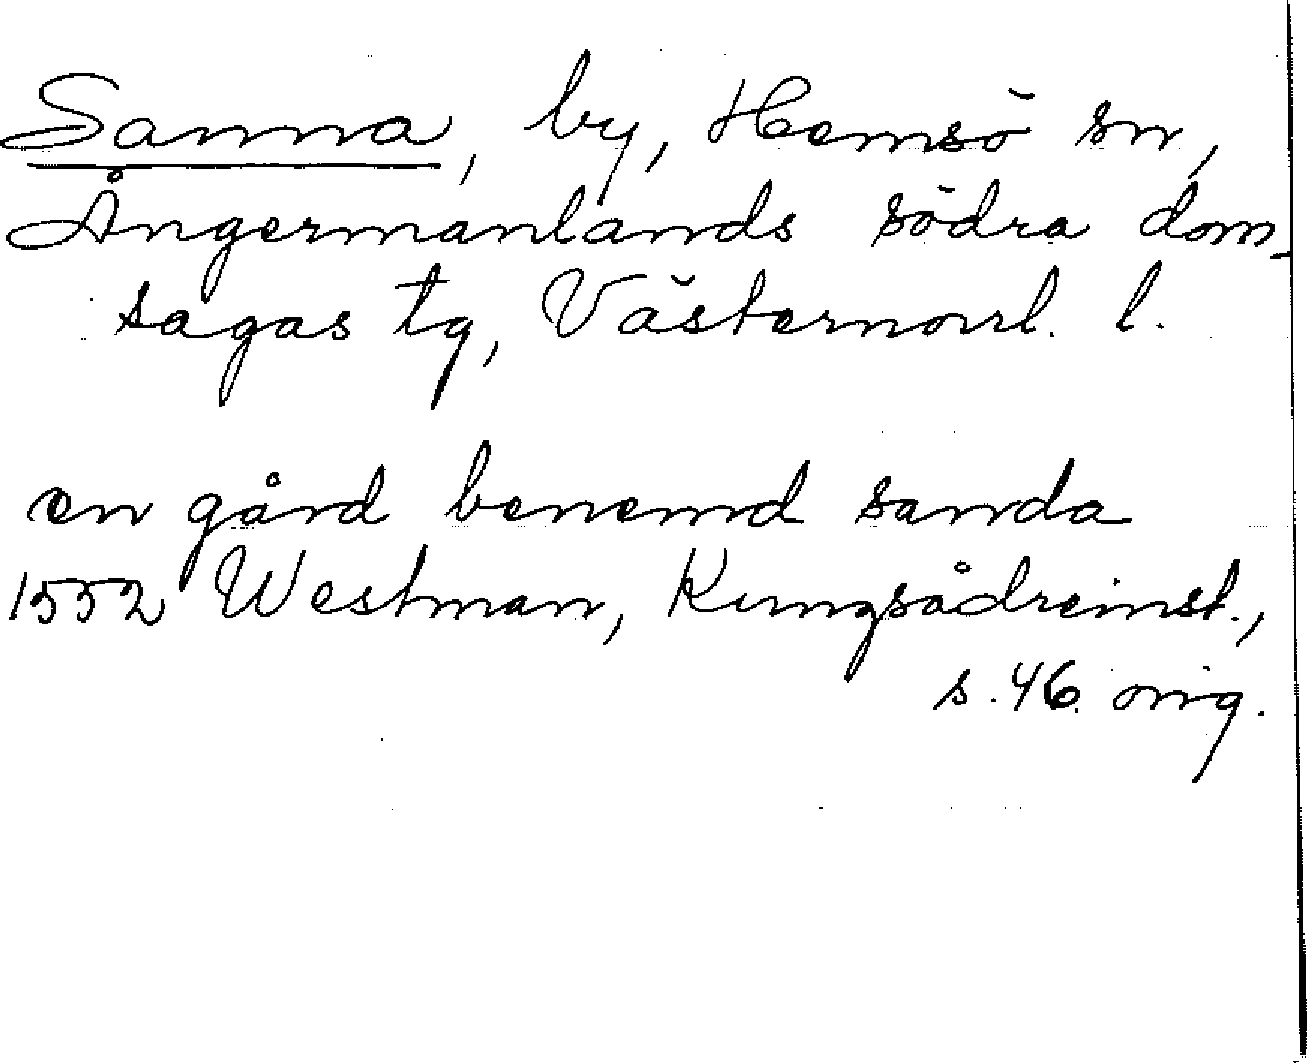 Sanna, by, Hemsö sn,
Ångermanlands södra dom-
sagas tg, Västernorrl. l.
en gård benemd sanda
1552 Westman, Kungsådreinst.,
s. 46 orig.